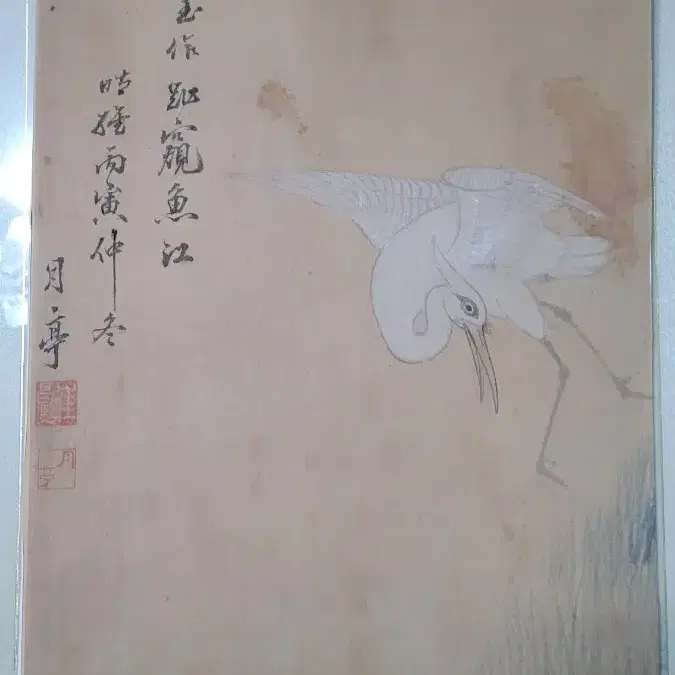 玉作趾窺魚江
時維丙寅仲冬
月亭
月亭